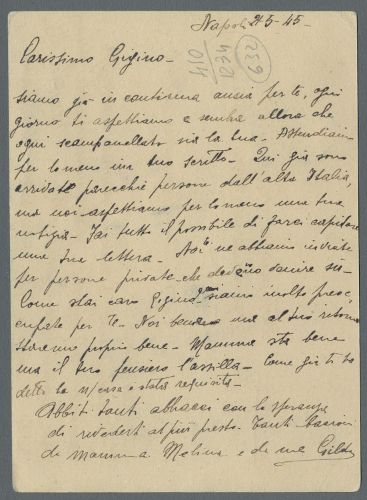 Napoli 21-5-45-
410
1234
632
Carissimo Gigino-
siamo già in continua ansia per te, ogni
giorno ti aspettiamo e sembra allora che
ogni scampanellata sia la tua. Attendiamo
per lo meno un tuo scritto. Qui già sono
arrivate parecchie persone dall'alta Italia,
ma noi aspettiamo per lo meno una tua
notizia. Fai tutto il possibile di farci capitare
una tua lettera. Noi ne abbiamo inviate
per persone private che dovevano venire su.
Come stai caro Gigino, siamo molto preoc
cupate per te. Noi bene ma al tuo ritorno
staremo proprio bene. Mamma sta bene
ma il tuo pensiero l'assilla. Come già ti ho
detto la casa è stata requisita.
Abbiti tanti abbracci con la speranza
di rivederti al più presto. Tanti bacioni
da mamma e da me Gilda